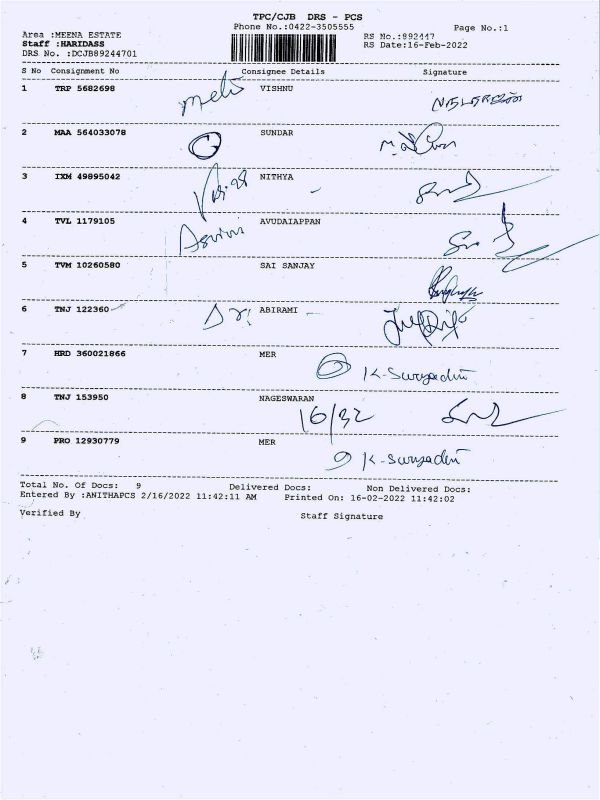 TPC/CJB DRS - PCS
Phone No.:0422-3505555
Page No.:1
Area :MEENA ESTATE
RS No.:892447
Staff :HARIDASS
RS Date:16-Feb-2022
DRS No. :DCJB89244701
S No Consignment No Consignee Details Signature
1 TRP 5682698 VISHNU
2 MAA 564033078 SUNDAR
3 IXM 49895042 NITHYA
4 TVL 1179105 Asvini AVUDAIAPPAN
5 TVM 10260580 SAI SANJAY
6 TNJ 122360 ABIRAMI
7 HRD 360021866 MER
K-Suryadevi
8 TNJ 153950 NAGESWARAN
16/32
9 PRO 12930779 MER
K-Suryadevi
Total No. Of Docs: 9 Delivered Docs: Non Delivered Docs:
Entered By :ANITHAPCS 2/16/2022 11:42:11 AM Printed On: 16-02-2022 11:42:02
Verified By Staff Signature